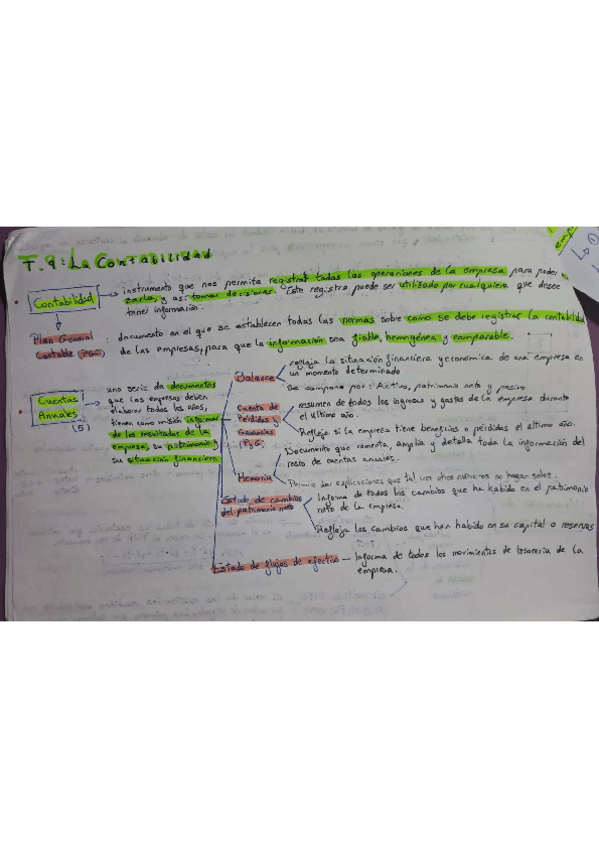 T.9: La Contabilidad
Contabilidad
instrumento que nos permite registrar todas las operaciones de la empresa para poder
zarla, y así tomar decisiones. Este registro puede ser utilizado por cualquiera que desee
tener información.
Plan General
Contable (PGC)
: documento en el que se establecen todas las normas sobre como se debe registrar la contabilidad
de las empresas, para que la información sea fiable, homogénea, y comparable.
Cuentas
Anuales
(5)
una serie da documentos
que las empresas deben
elaborar todos los años,
tienen como misión informar
de los resultados de la
empresa, su patrimonio y
su situación financiera
Balance
refleja la situación financiera y económica de una empresa en
un momento determinado
Se compone por: Activo, patrimonio neto y pasivo
Cuenta de
Pérdidas y
Ganancias
(PyG)
resumen de todos los ingresos y gastos de la empresa durante
el último año.
Refleja si la empresa tiene beneficios o pérdidas el último año.
Memoria
Documento que comenta, amplía y detalla toda la información del
resto de cuentas anuales.
Permite dar explicaciones que tal vez otros números no hagan solos.
Estado de cambios
del patrimonio neto
Informa de todos los cambios que ha habido en el patrimonio
neto de la empresa.
Refleja los cambios que han habido en su capital o reservas
Estado de flujos de efectivo
Informa de todos los movimientos de tesorería de la
empresa.